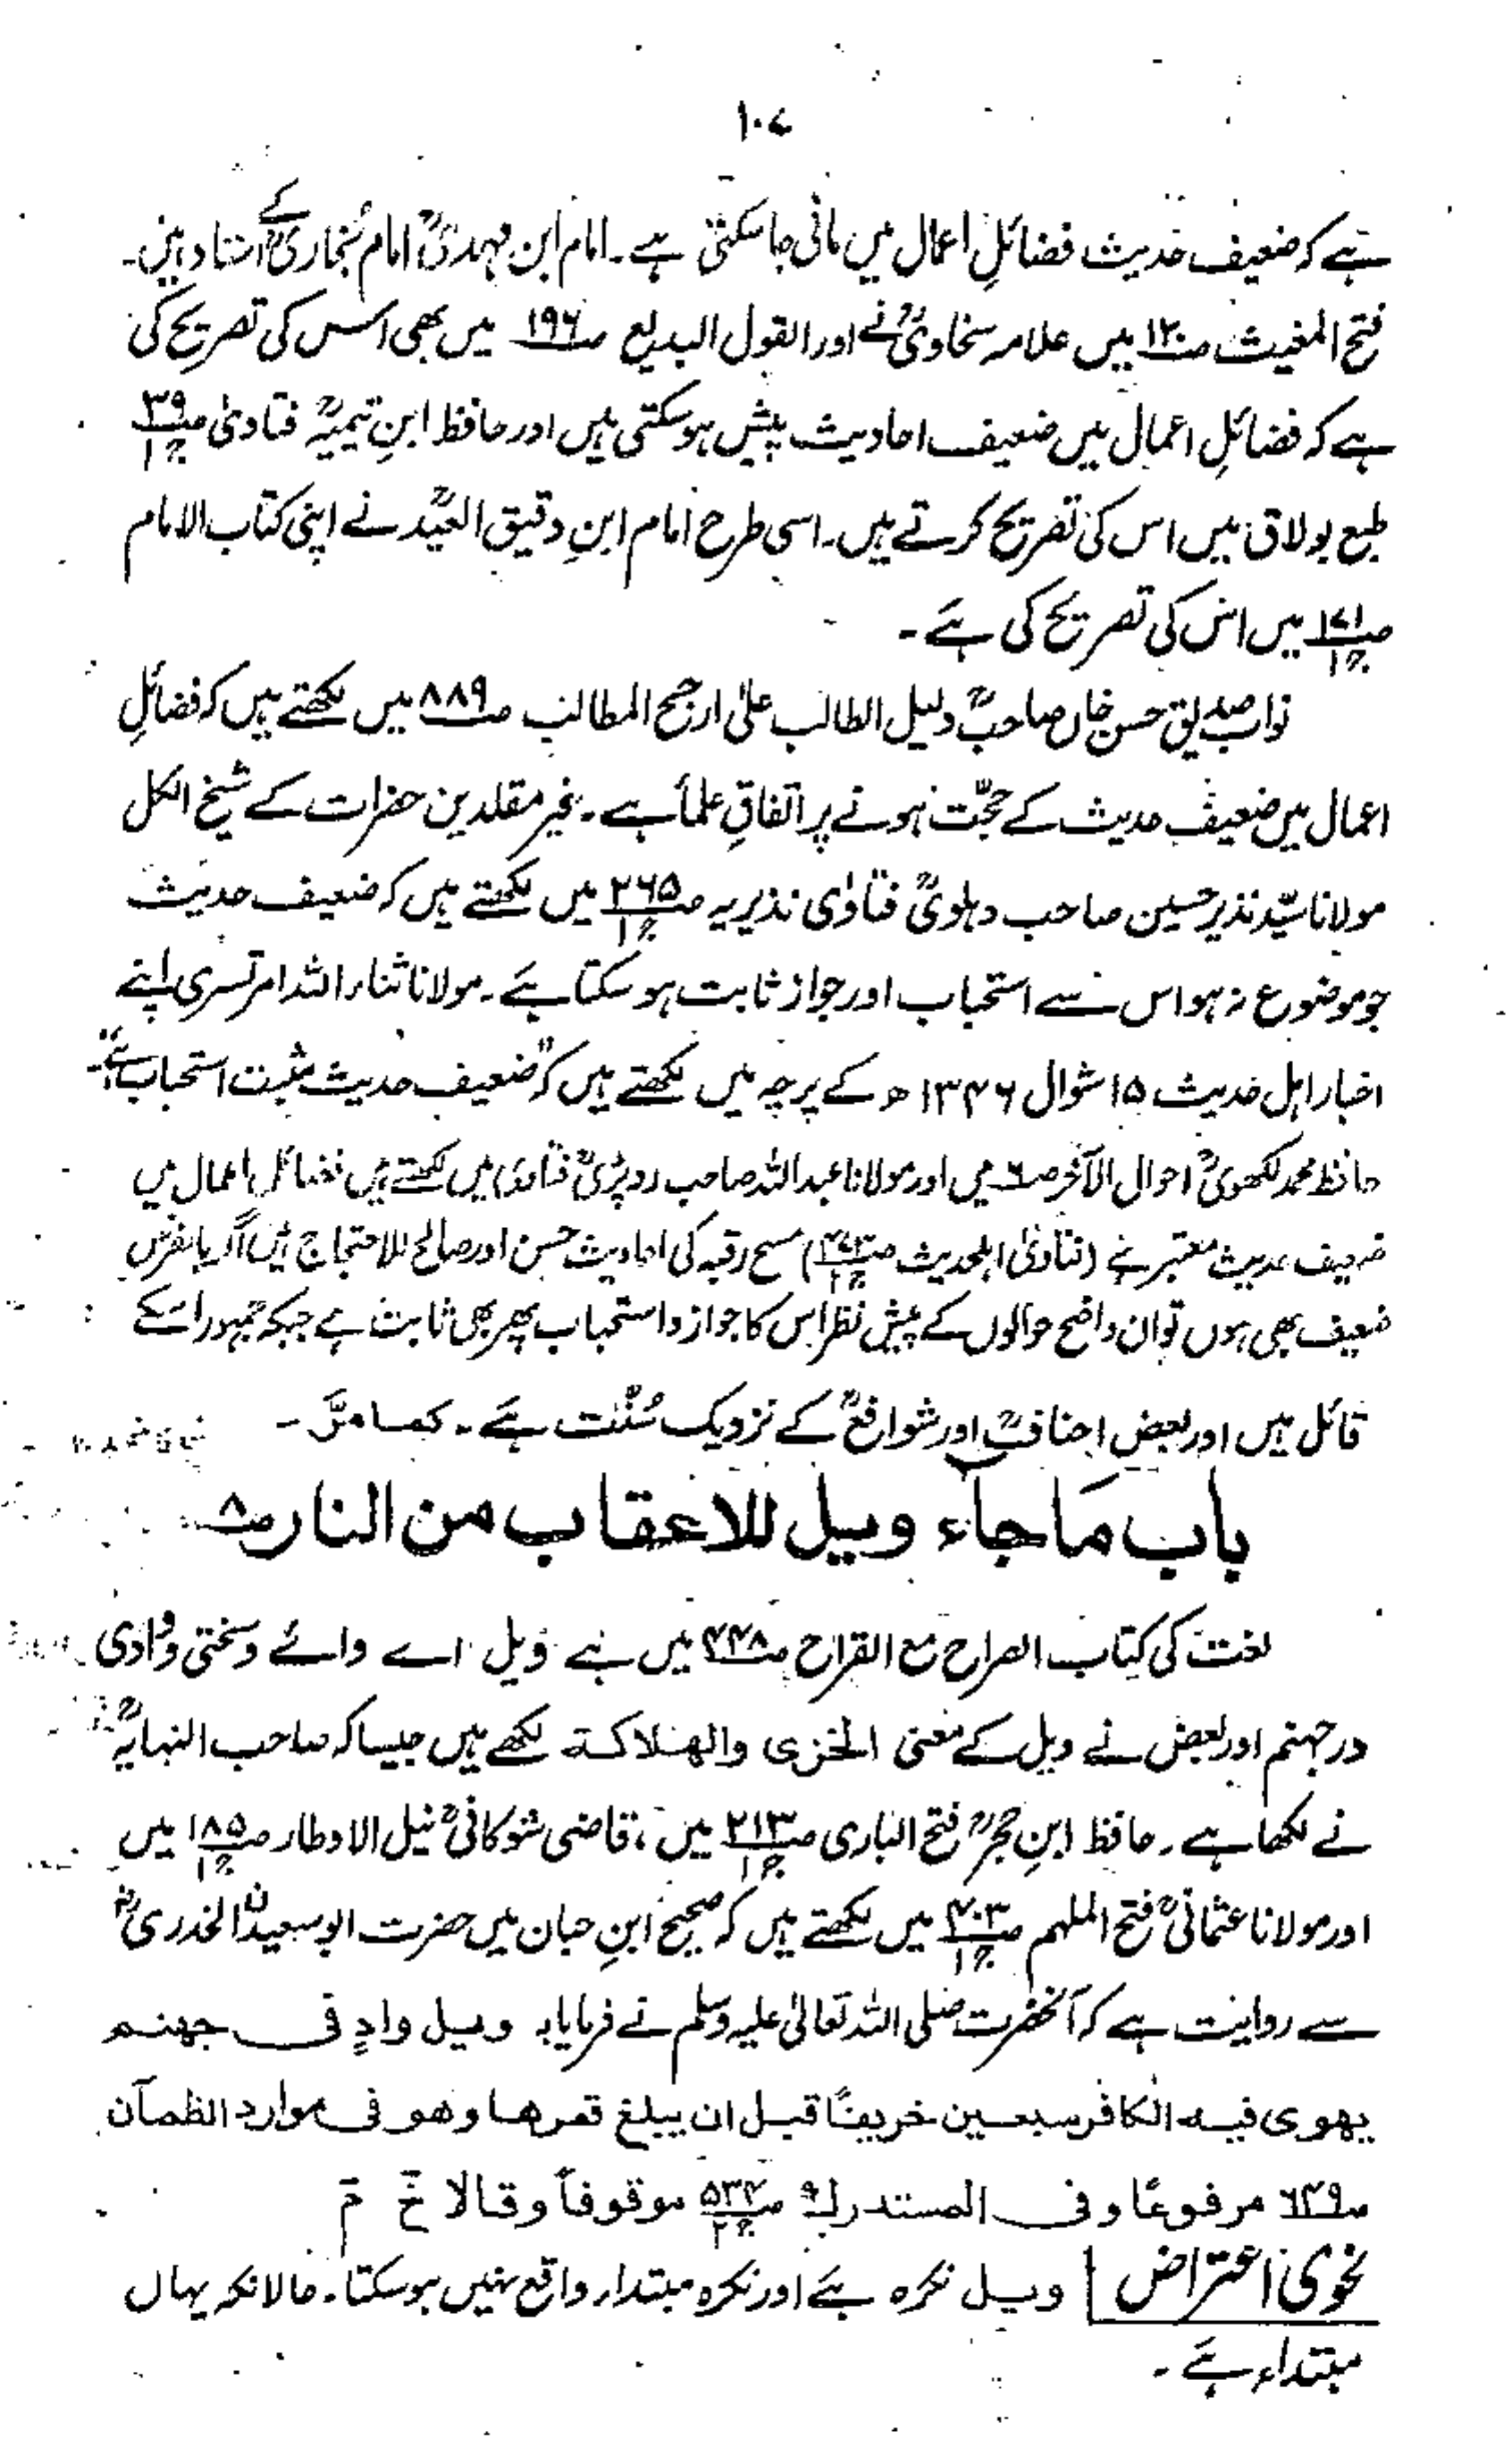 ۱۰۷
ہے کہ ضعیف حدیث فضائلِ اعمال میں مانی جا سکتی ہے۔ امام ابن مہدیؒ امام بُخاریؒ کے استاد ہیں۔
فتح المغیث صـ۱۲۰ میں علامہ سخاویؒ نے اور القول البدیع صـ۱۹۶ میں بھی اس کی تصریح کی
ہے کہ فضائلِ اعمال میں ضعیف احادیث پیش ہو سکتی ہیں اور حافظ ابنِ تیمیہؒ فتاویٰ صـ۳۹ ج۱
طبع بولاق میں اس کی تصریح کرتے ہیں۔ اسی طرح امام ابنِ دقیق العیدؒ نے اپنی کتاب الامام
صـ۱۷۱ ج۱ میں اس کی تصریح کی ہے۔
نواب صدیق حسن خاں صاحبؒ دلیل الطالب علیٰ ارجح المطالب صـ۸۸۹ میں لکھتے ہیں کہ فضائلِ
اعمال میں ضعیف حدیث کے حجّت ہونے پر اتفاقِ علمأ ہے۔ غیر مقلدین حضرات کے شیخ الکل
مولانا سیّد نذیر حسین صاحب دہلویؒ فتاوٰی نذیریہ صـ۲۶۵ ج۱ میں لکھتے ہیں کہ ضعیف حدیث
جو موضوع نہ ہو اس سے استحباب اور جواز ثابت ہو سکتا ہے۔ مولانا ثناء اللہ امرتسری اپنے
اخبار اہل حدیث ۱۵ شوال ۱۳۴۶ھ کے پرچہ میں لکھتے ہیں کہ "ضعیف حدیث مثبت استحباب ہے"۔
حافظ محمد لکھویؒ احوال الآخر صـ۶ میں اور مولانا عبداللہ صاحب روپڑیؒ فتاویٰ میں لکھتے ہیں فضائل اعمال میں
ضعیف حدیث معتبر ہے (فتاویٰ اہلحدیث ج۱) مسح رقبہ کی احادیث حسن اور صالح للاحتجاج ہیں اگر بالفرض
ضعیف بھی ہوں تو ان واضح حوالوں کے پیش نظر اس کا جواز و استحباب پھر بھی ثابت ہے جبکہ جمہور اسکے
قائل ہیں اور بعض احنافؒ اور شوافعؒ کے نزدیک سُنّت ہے۔ کما مرّ۔
باب مَا جاَء ویل للاعقاب من النار صـ۸
لغت کی کتاب الصراح مع القراح صـ۴۴۸ میں ہے ویل اے وائے و سختی و وادی
در جہنم اور بعض نے ویل کے معنی الخزی والھلاکۃ لکھے ہیں جیسا کہ صاحب النہایہؒ
نے لکھا ہے۔ حافظ ابنِ حجرؒ فتح الباری صـ۲۱۳ ج۱ میں، قاضی شوکانیؒ نیل الاوطار صـ۱۸۵ ج۱ میں
اور مولانا عثمانیؒ فتح الملہم صـ۴۰۳ ج۱ میں لکھتے ہیں کہ صحیح ابنِ حبان میں حضرت ابو سعیدؓ الخدریؓ
سے روایت ہے کہ آنحضرت صلی اللہ تعالیٰ علیہ وسلم نے فرمایا؛ ویل وادٍ فی جھنم
یھوی فیہ الکافر سبعین خریفًا قبل ان یبلغ قعرھا وھو فی موارد الظمآن
صـ۶۴۹ مرفوعًا و فی المستدرک صـ۵۳۴ ج۲ موقوفاً وقالا خؔ مؔ
نحوی اعتراض | ویل نکرہ ہے اور نکرہ مبتداء واقع نہیں ہو سکتا۔ حالانکہ یہاں
مبتداء ہے۔